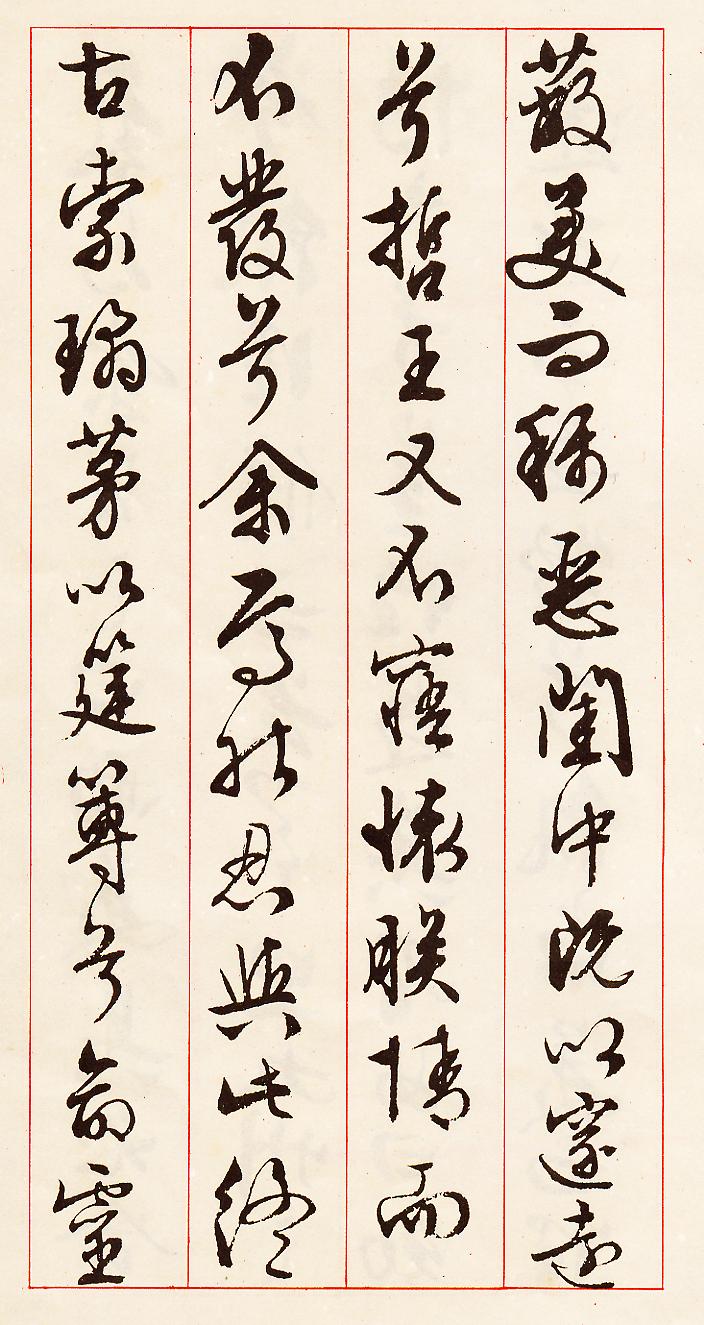 蔽美而稱惡閨中既以邃遠
兮哲王又不寤懷朕情而
不發兮余焉能忍與此終
古索璚茅以筳篿兮命靈